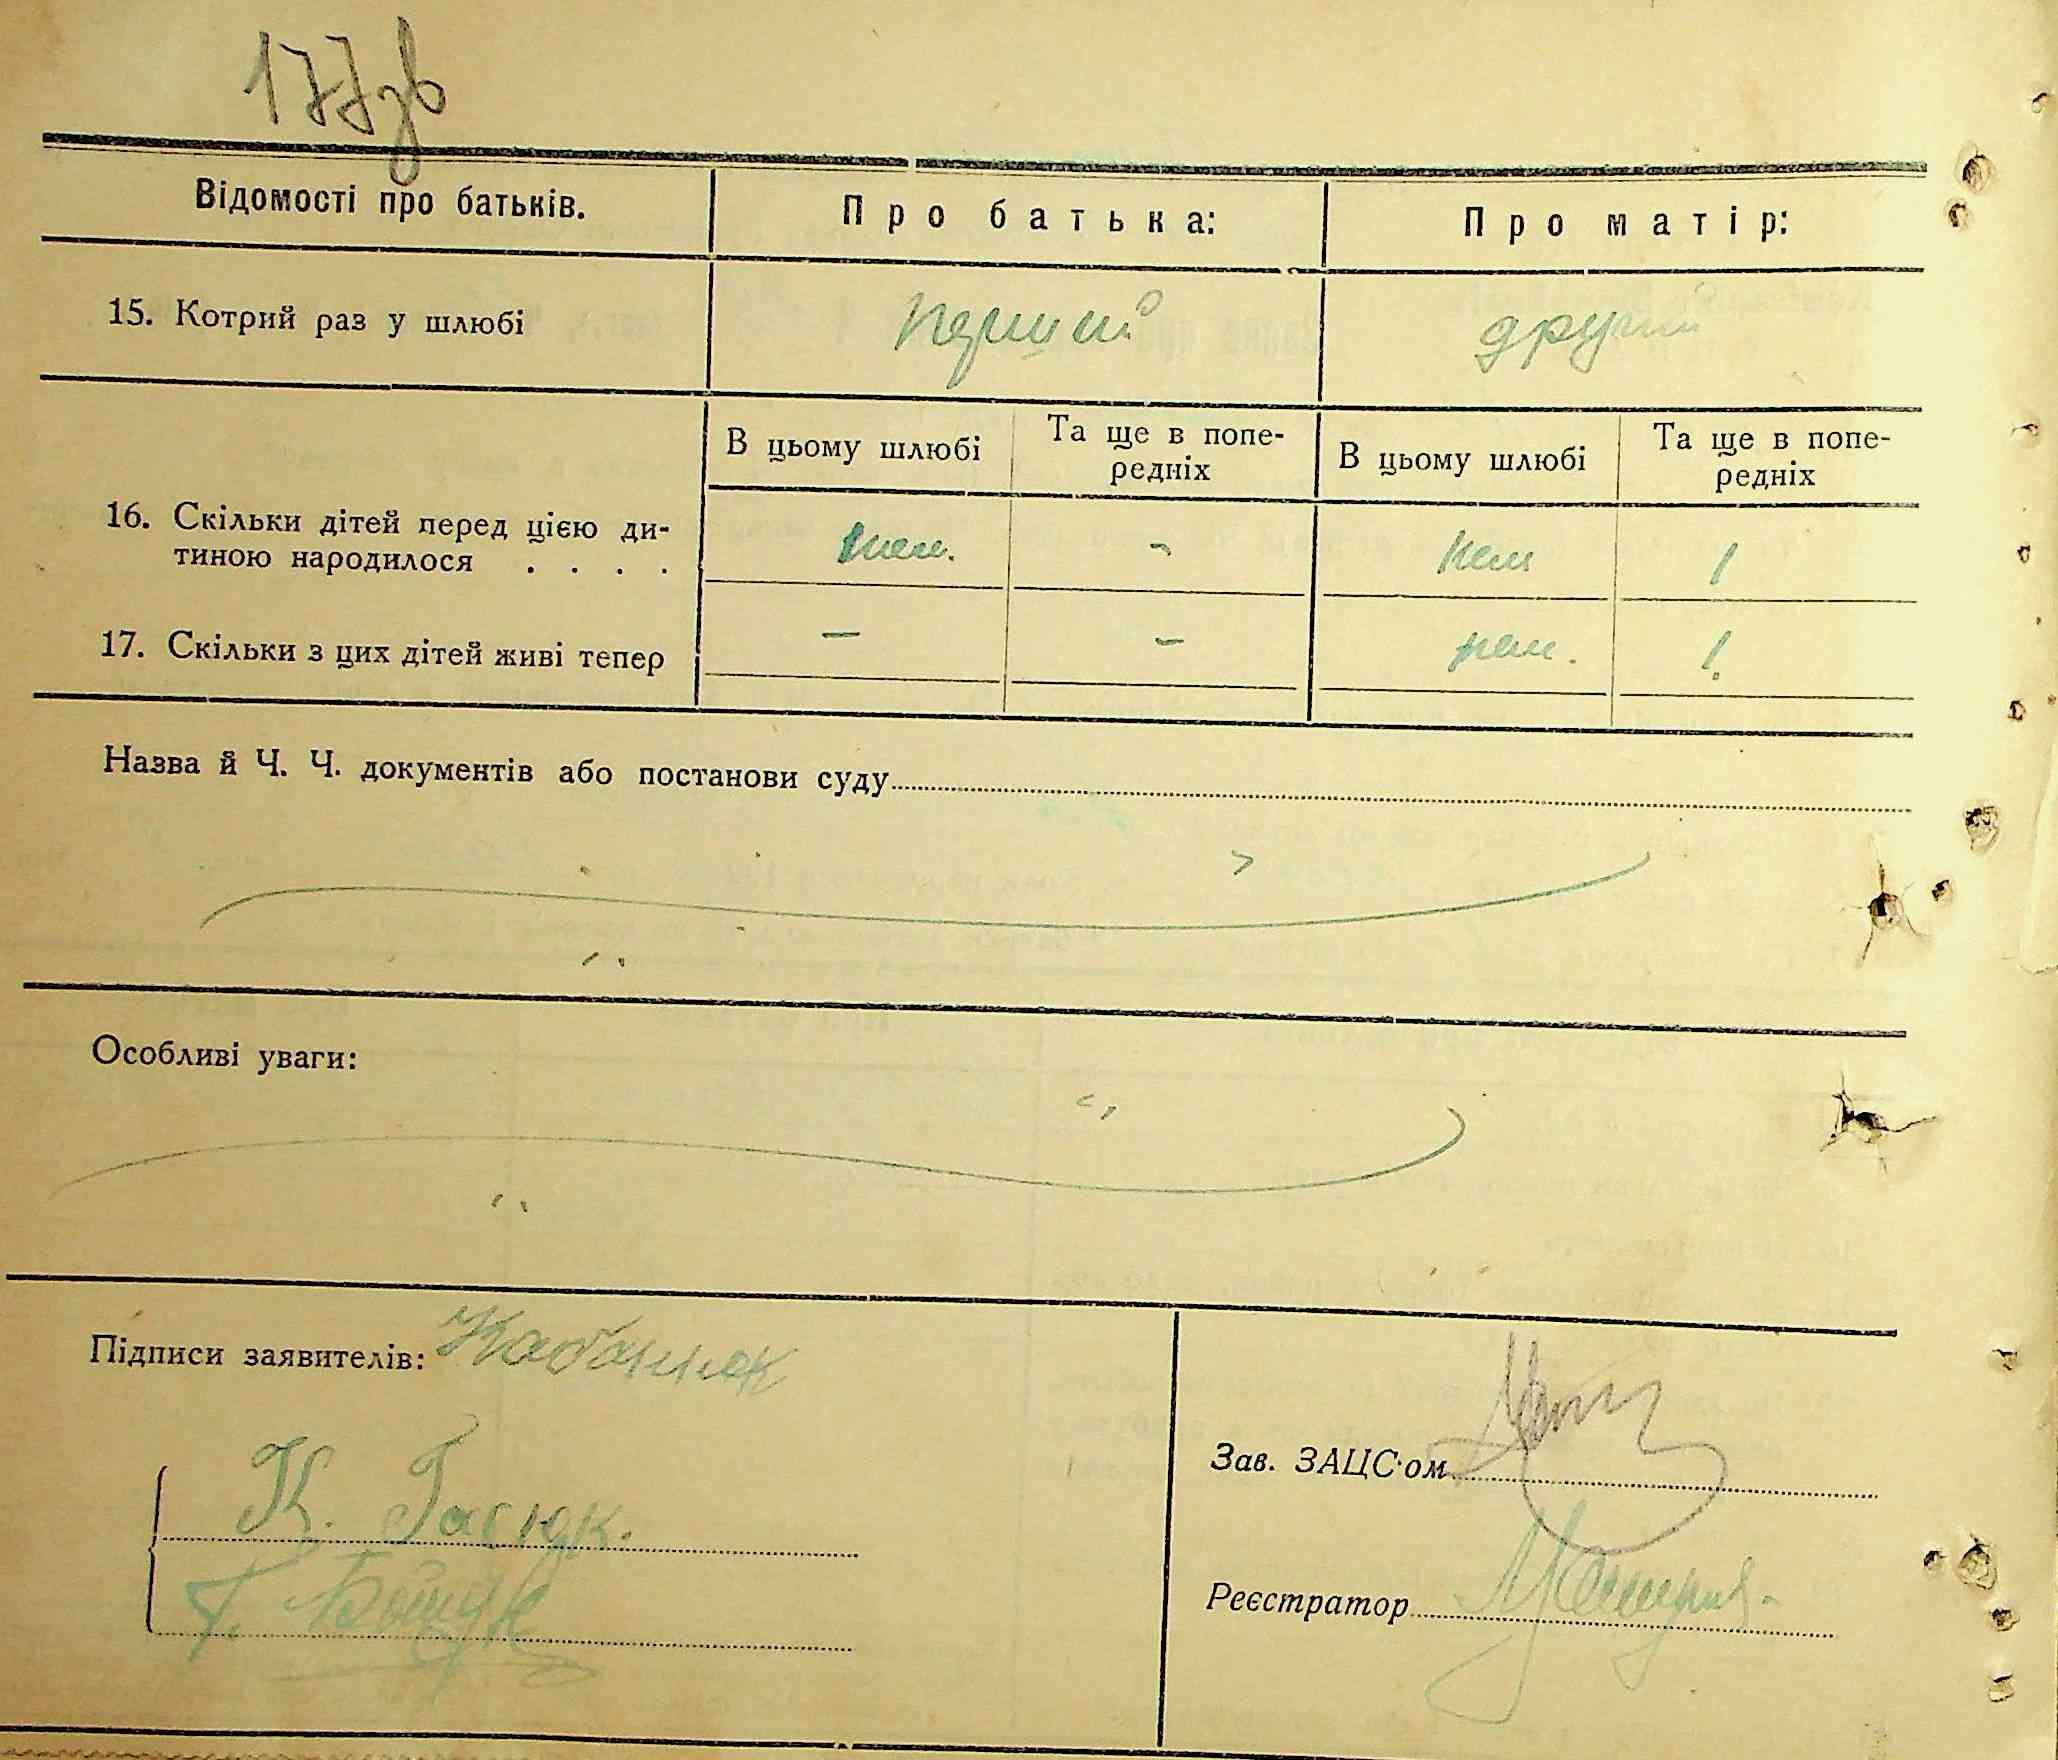 177зв
Відомості про батьків.
Про батька:
Про матір:
15. Котрий раз у шлюбі
перший
другий
В цьому шлюбі
Та ще в попе-
редніх
В цьому шлюбі
Та ще в попе-
редніх
16. Скільки дітей перед цією ди-
тиною народилося . . . .
нем.
-
нем
1
17. Скільки з цих дітей живі тепер
–
-
нем.
1.
Назва й Ч. Ч. документів або постанови суду
Особливі уваги:
Підписи заявителів:
К. Гасюк.
Г.
Зав. ЗАЦС·ом
Реєстратор